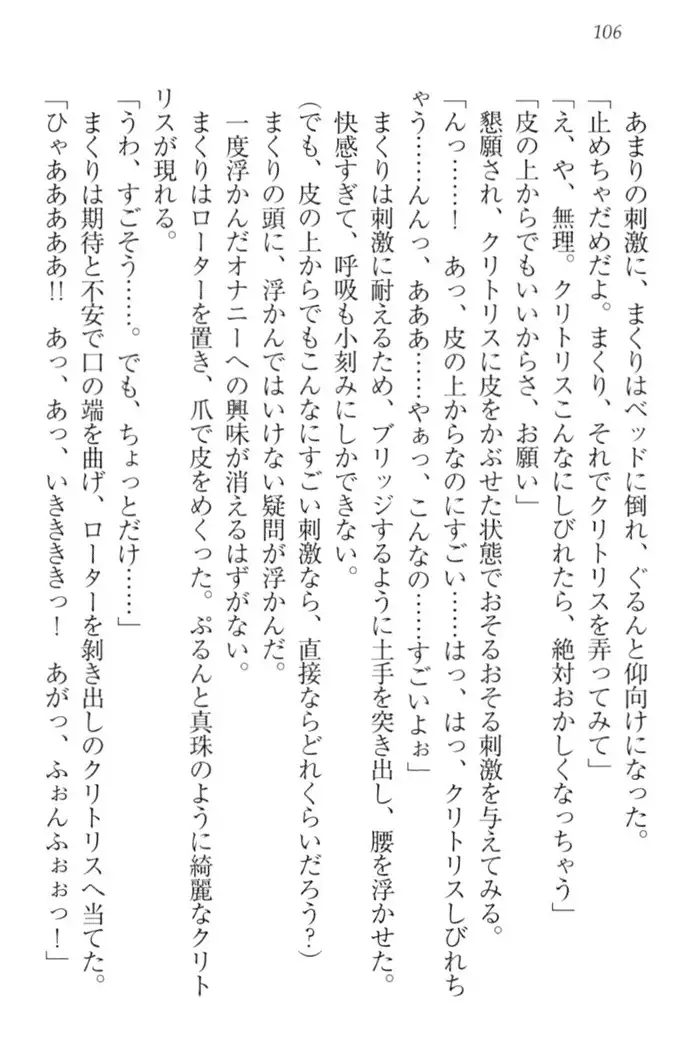 106
あまりの刺激に、まくりはベッドに倒れ、ぐるんと仰向けになった。
「止めちゃだめだよ。まくり、それでクリトリスを弄ってみて」
「え、や、無理。クリトリスこんなにしびれたら、絶対おかしくなっちゃう」
「皮の上からでもいいからさ、お願い」
懇願され、クリトリスに皮をかぶせた状態でおそるおそる刺激を与えてみる。
「んっ……！　あっ、皮の上からなのにすごい……はっ、はっ、クリトリスしびれち
ゃう……んんっ、あああ……やぁっ、こんなの……すごいよぉ」
まくりは刺激に耐えるため、ブリッジするように土手を突き出し、腰を浮かせた。
快感すぎて、呼吸も小刻みにしかできない。
(でも、皮の上からでもこんなにすごい刺激なら、直接ならどれくらいだろう？)
まくりの頭に、浮かんではいけない疑問が浮かんだ。
一度浮かんだオナニーへの興味が消えるはずがない。
まくりはローターを置き、爪で皮をめくった。ぷるんと真珠のように綺麗なクリト
リスが現れる。
「うわ、すごそう……。でも、ちょっとだけ……」
まくりは期待と不安で口の端を曲げ、ローターを剝き出しのクリトリスへ当てた。
「ひゃああああ!!　あっ、あっ、いきききっ！　あがっ、ふぉんふぉぉっ！」